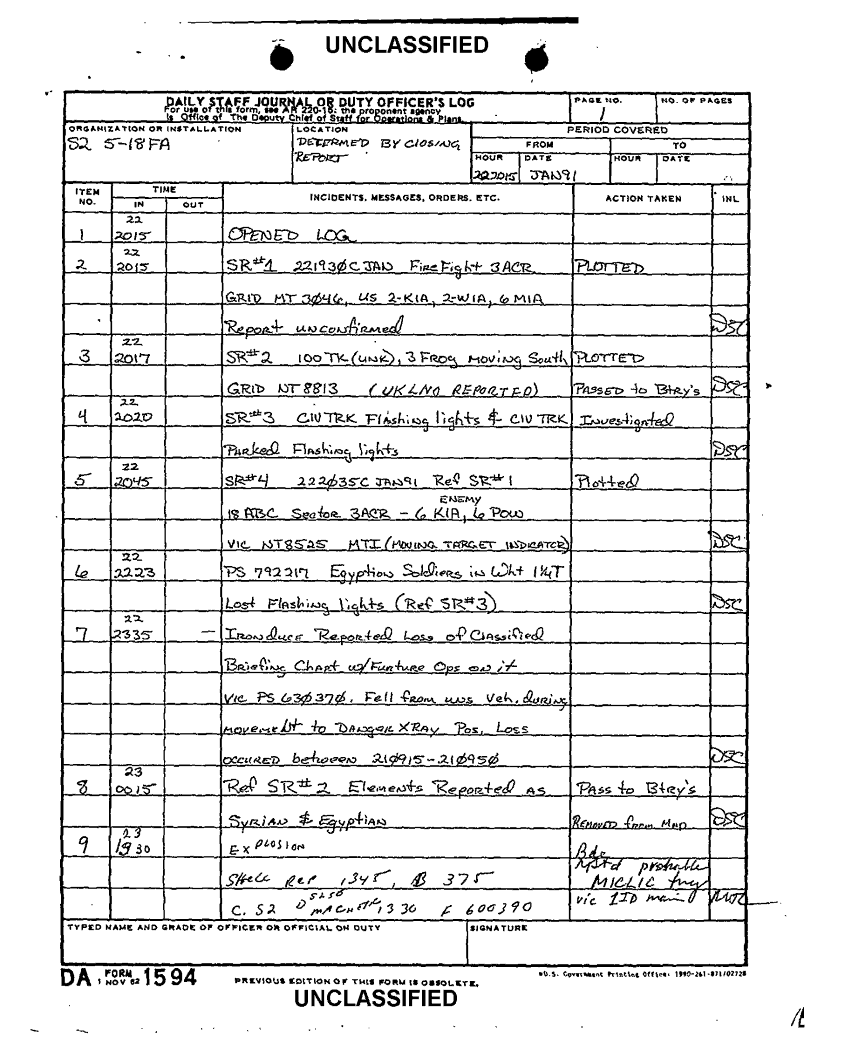 UNCLASSIFIED
DAILY STAFF JOURNAL OR DUTY OFFICER'S LOG
For use of this form, see AR 220-15; the proponent agency
is Office of The Deputy Chief of Staff for Operations & Plans.
PAGE NO.
1
NO. OF PAGES
ORGANIZATION OR INSTALLATION
S2 5-18 FA
LOCATION
DETERMED BY Closing
REPORT
PERIOD COVERED
FROM
TO
HOUR
DATE
HOUR
DATE
222015
JAN91
ITEM NO.
TIME
IN
OUT
INCIDENTS, MESSAGES, ORDERS, ETC.
ACTION TAKEN
INL
1 22 2015 OPENED LOG
2 22 2015 SR#1 221930C JAN FireFight 3ACR PLOTTED
GRID MT 3046, US 2-KIA, 2-WIA, 6 MIA
Report unconfirmed DSC
3 22 2017 SR#2 100 TK (UNK), 3 FROG MOVING South PLOTTED
GRID NT 8813 (UK LNO REPORTED) PASSED to Btry's DSC
4 22 2020 SR#3 CIV TRK Flashing lights & CIV TRK Investigated
Parked Flashing lights DSC
5 22 2045 SR#4 222035C JAN91 Ref SR#1 Plotted
18 ABC Sector 3ACR - 6 ENEMY KIA, 6 POW
VIC NT8525 MTI (MOVING TARGET INDICATOR) DSC
6 22 2223 PS 792217 Egyption Soldiers in Wht 1¼T
Lost Flashing lights (Ref SR#3) DSC
7 22 2335 — Iron duce Reported Loss of Classified
Briefing Chart w/Furture Ops on it
VIC PS 630370. Fell from uns Veh. during
movement to Danger XRAY Pos. Loss
occured between 210915-210950 DSC
8 23 0015 Ref SR#2 Elements Reported as Pass to Btry's
Syrian & Egyptian Removed from Map DSC
9 23 1930 EXPLOSION Bde
Shell Rep 1345, B 375 probable
MICLIC
C. S2 D 5250 1330 F 600390 vic 1ID main
TYPED NAME AND GRADE OF OFFICER OR OFFICIAL ON DUTY
SIGNATURE
DA FORM 1594
1 NOV 62
PREVIOUS EDITION OF THIS FORM IS OBSOLETE.
*U.S. Government Printing Office: 1990-261-871/02728
UNCLASSIFIED